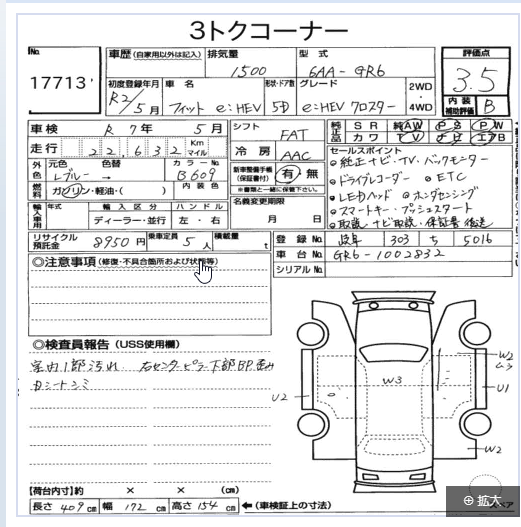 3トクコーナー
No. 車歴(自家用以外は記入) 排気量 型式 評価点
17713 1500 6AA-GR6 3.5
初度登録年月 車名 形状・ドア数 グレード 2WD・4WD 内装補助評価 B
R2/5月 フィット e:HEV 5D e:HEV クロスター
車検 R 7年 5月 シフト FAT 純正品 SR 純AW PS PW
カワ TV ナビ エアB
走行 22,632 Km マイル 冷房 AAC セールスポイント
外色 元色 色替 カラーNo.
Lブルー → B609
新車整備手帳(保証書付) 有・無
※書類と一緒に保管下さい。
燃料 ガソリン・軽油・( ) 内装色
純正ナビ・TV、バックモニター
ドライブレコーダー ETC
LEDヘッド ホンダセンシング
スマートキー・プッシュスタート
取説 ナビ取説・保証書 後送
輸入車用 年式 輸入区分 ハンドル
ディーラー・並行 左・右
名義変更期限
月 日
リサイクル預託金 8950円 乗車定員 5人 積載量 t
登録No. 岐阜 303 ち 5016
車台No. GR6-1002832
シリアルNo.
◎注意事項(修復・不具合箇所および状態等)
◎検査員報告(USS使用欄)
室内1部汚れ 右センターピラー下部BP歪み
カシートシミ
W3
U2
W2
U1
W2
【荷台内寸】約 × × (cm)
長さ 409cm 幅 172cm 高さ 154cm ←(車検証上の寸法)
拡大